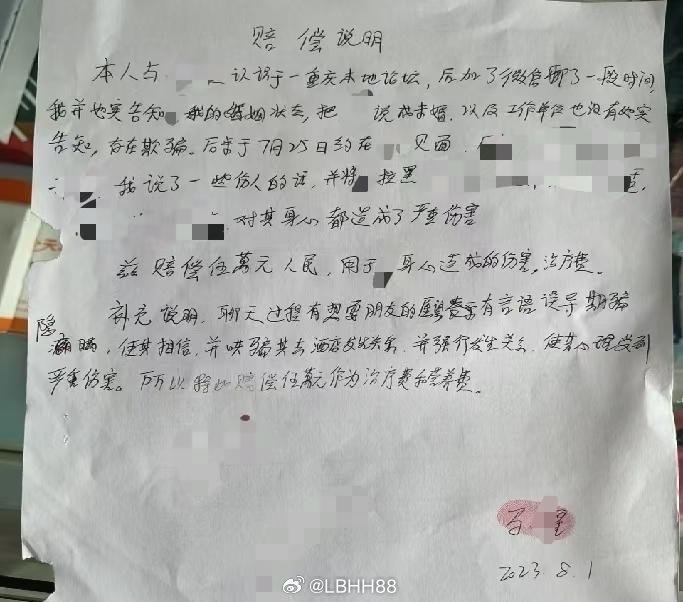 赔偿说明
本人与 认识于一重庆本地论坛,后加了微信聊了一段时间,
我并如实告知 我的婚姻状态,把 说成未婚,以及工作单位也没有如实
告知,存在欺骗。后来于7月25日约在 见面,
我说了一些伤人的话,并将 拉黑
对其身心都造成了严重伤害
兹赔偿伍萬元人民,用于 身心造成的伤害,治疗费。
补充说明,聊天过程有想要朋友的 有言语误导 期骗
隐瞒,使其相信,并哄骗其去酒店发生关系,并强行发生关系,使其心理受到
严重伤害。所以 赔偿伍萬元作为治疗费和营养费。
2023.8.1
@LBHH88